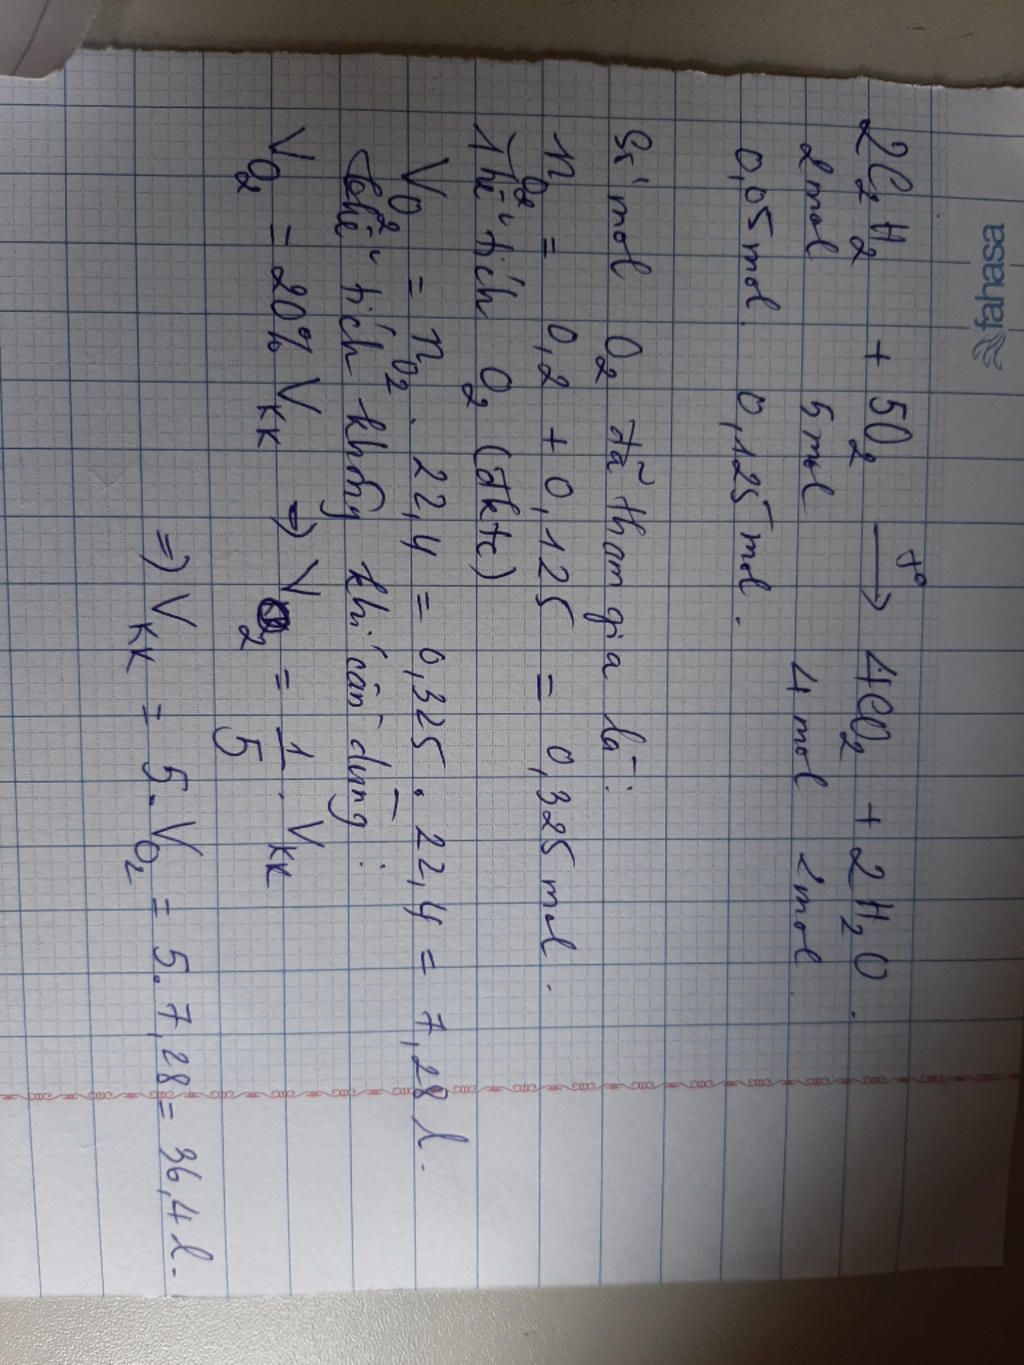 fahasa
2C₂H₂ + 5O₂ —t°→ 4CO₂ + 2H₂O.
2mol 5mol 4mol 2mol
0,05mol. 0,125mol.
Số mol O₂ đã tham gia là:
n_O₂ = 0,2 + 0,125 = 0,325 mol.
Thể tích O₂ (đktc)
V_O₂ = n_O₂ . 22,4 = 0,325 . 22,4 = 7,28 l.
thể tích không khí cần dùng:
V_O₂ = 20% V_KK ⇒ V_O₂ = 1/5 . V_KK
⇒ V_KK = 5. V_O₂ = 5. 7,28 = 36,4 l.